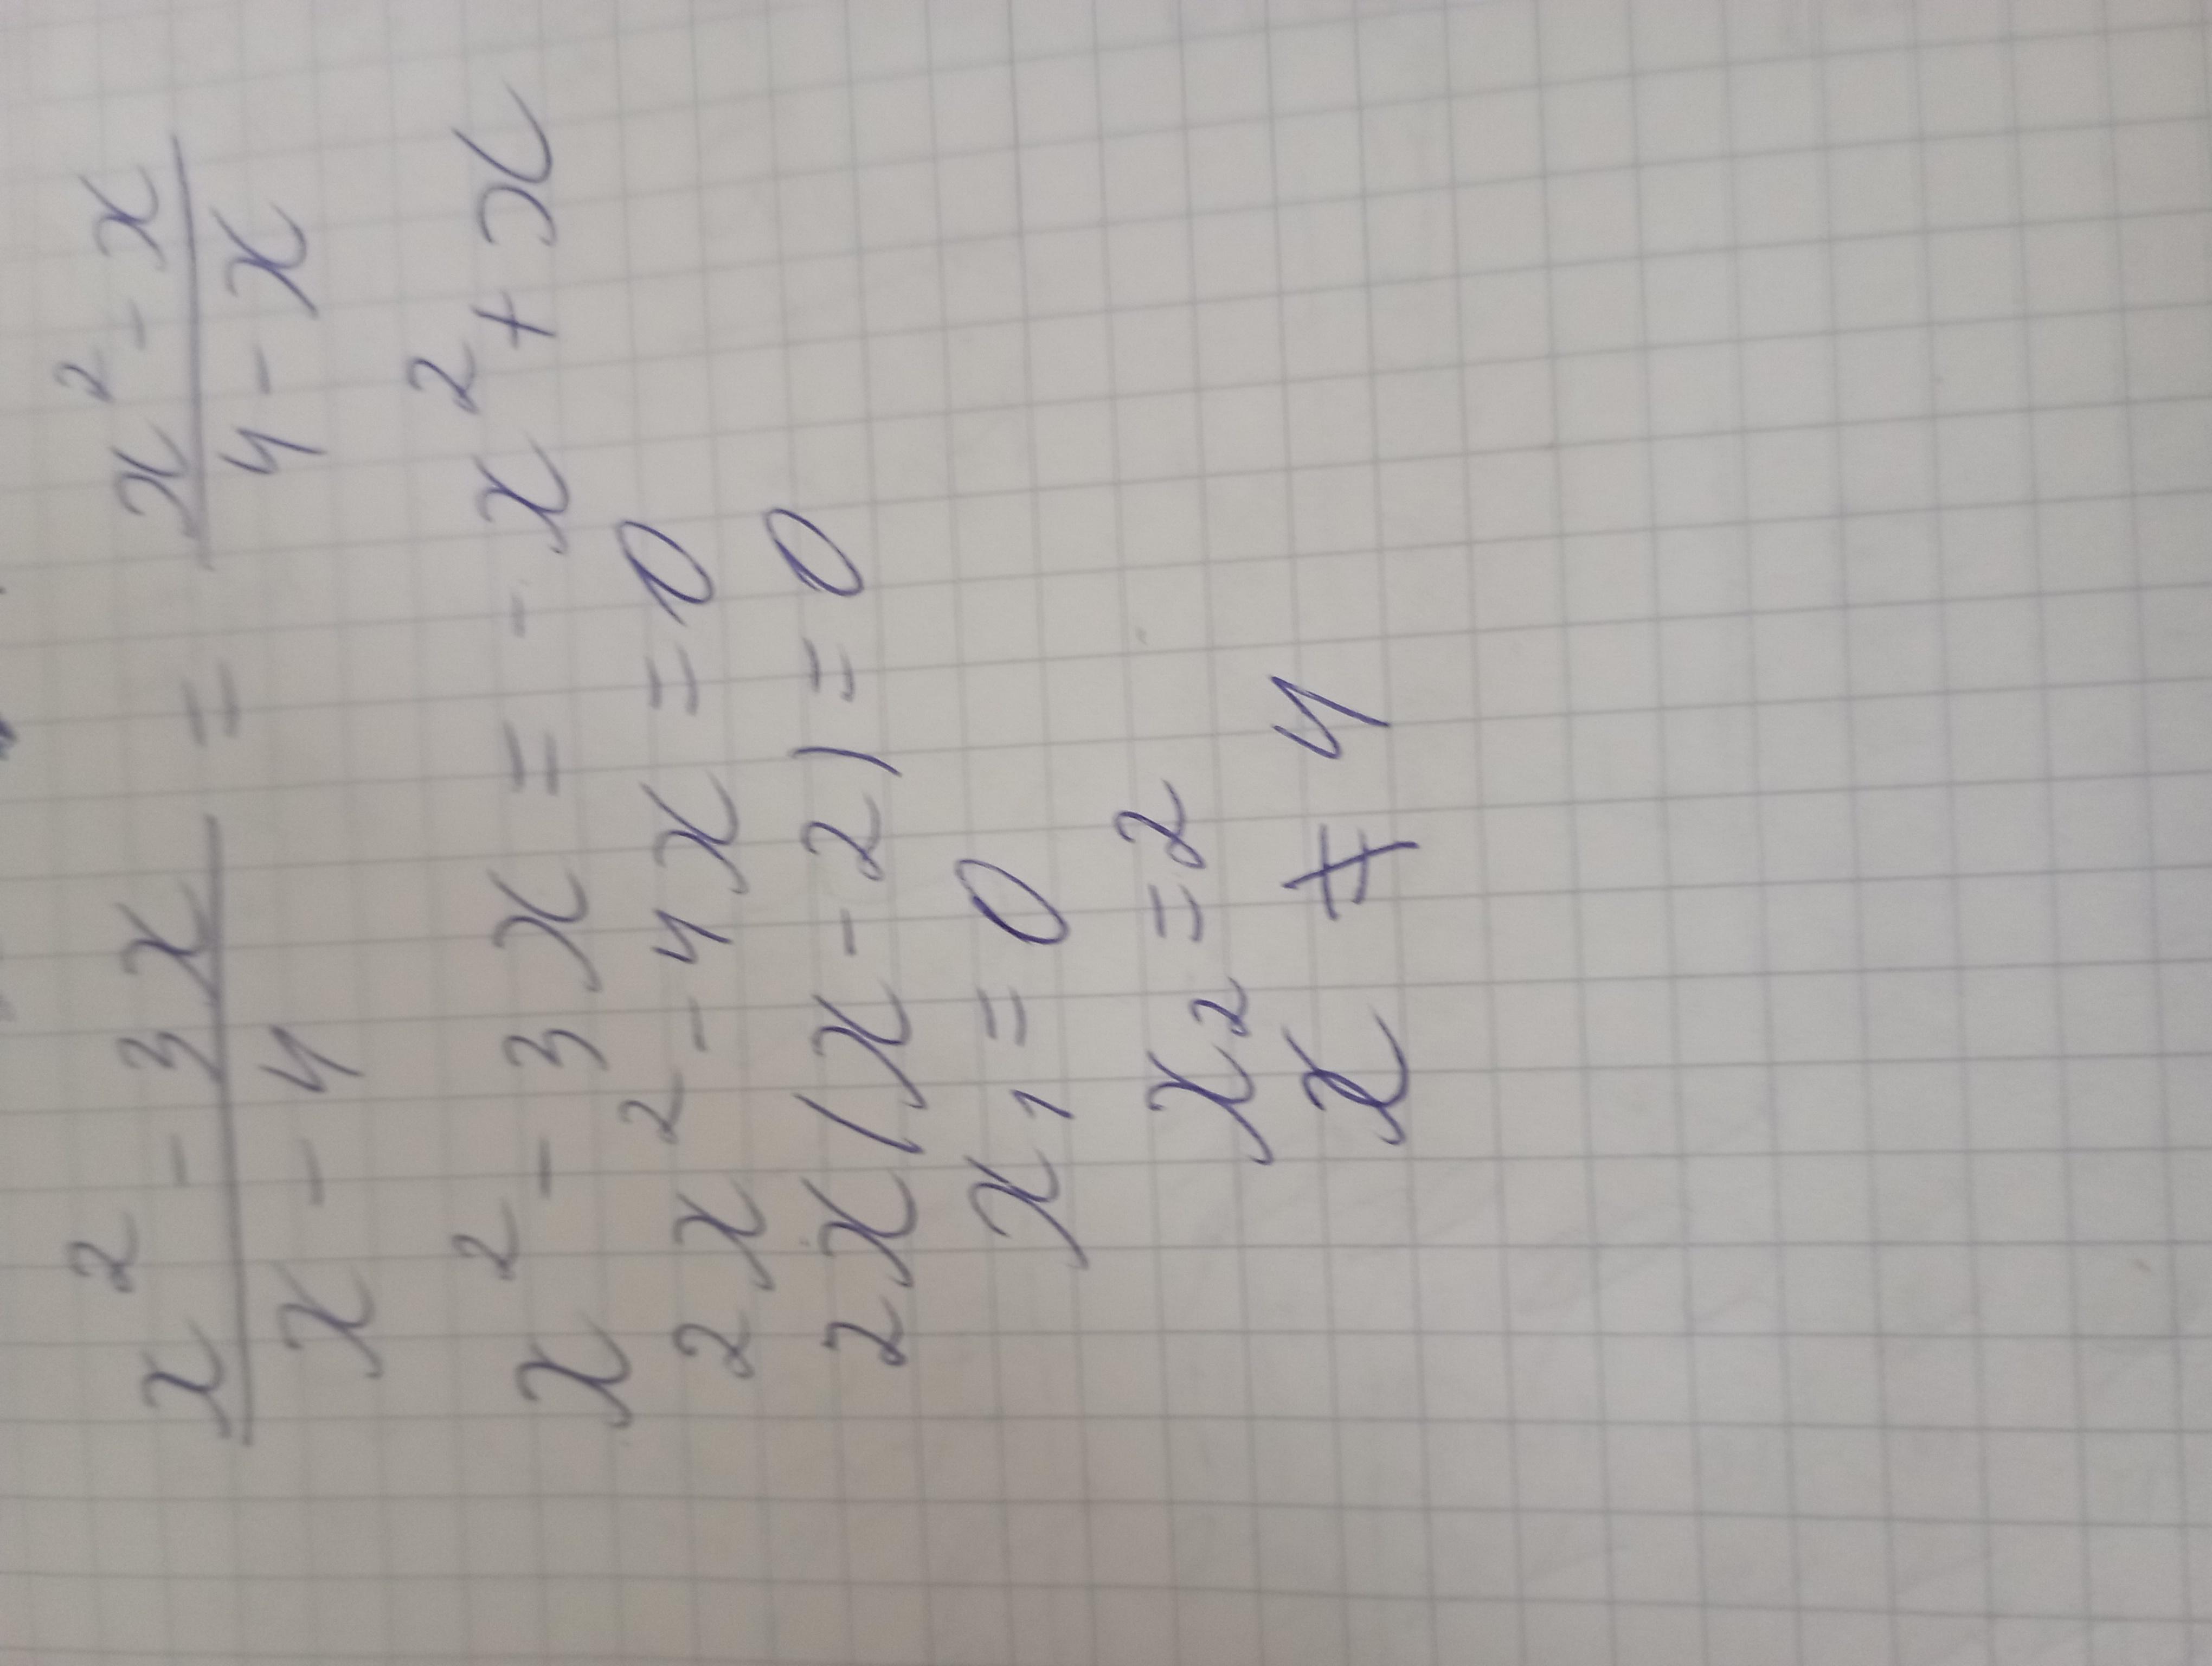 x² - 3x / x - 4 = x² - x / 4 - x
x² - 3x = - x² + x
2x² - 4x = 0
2x(x - 2) = 0
x₁ = 0
x₂ = 2
x ≠ 4